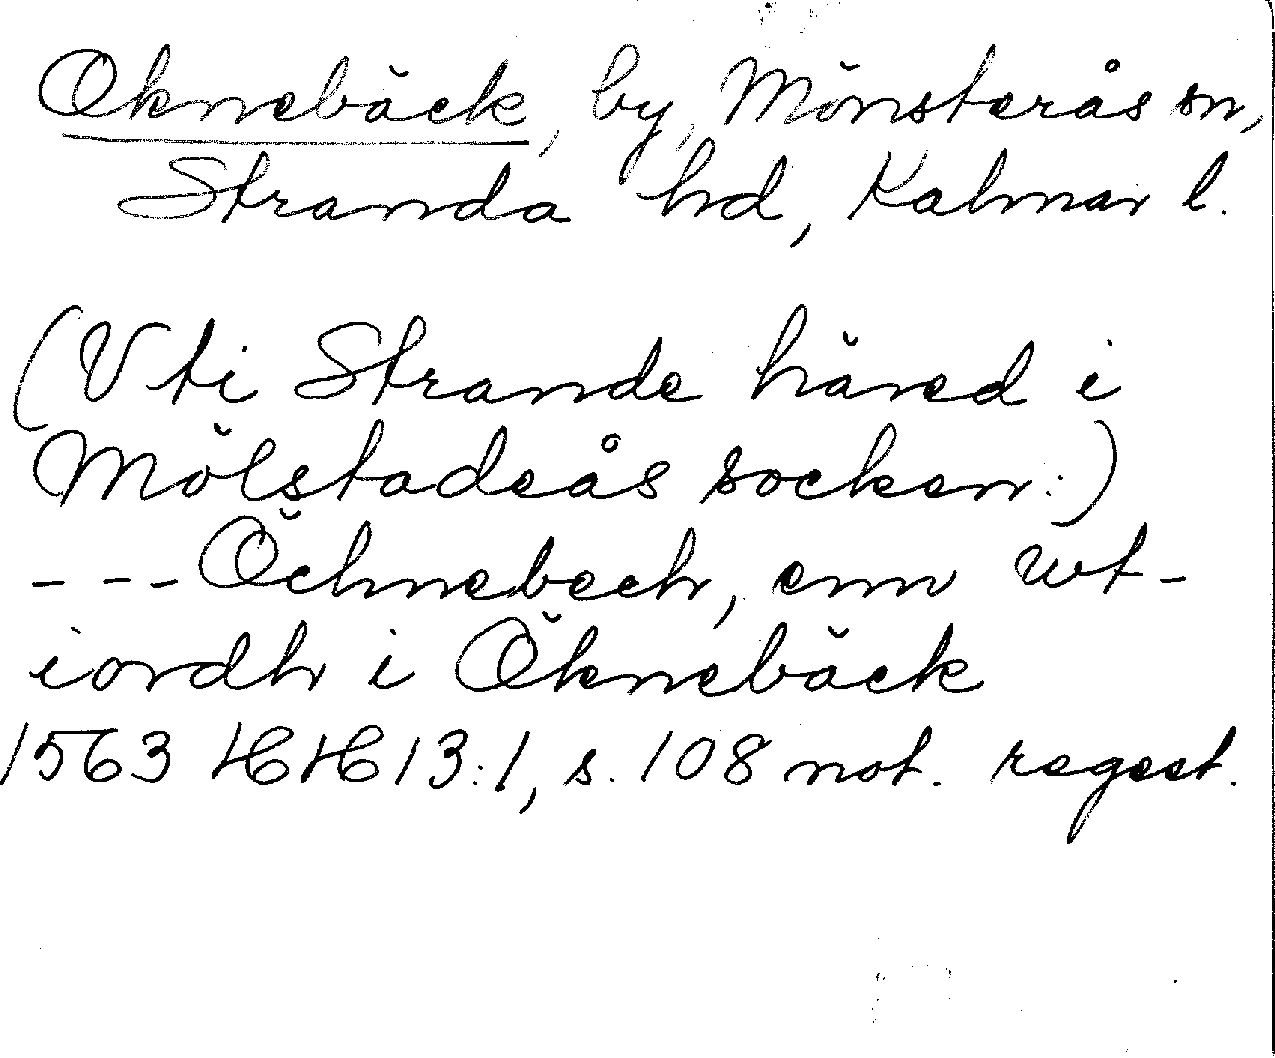 Oknebäck, by, Mönsterås sn,
Stranda hd, Kalmar l.
(Vti Strande häred i
Mölstadeås socken:)
- - - Öchnebech, enn wt-
iordh i Öknebäck
1563 HH 13:1, s. 108 not. regest.